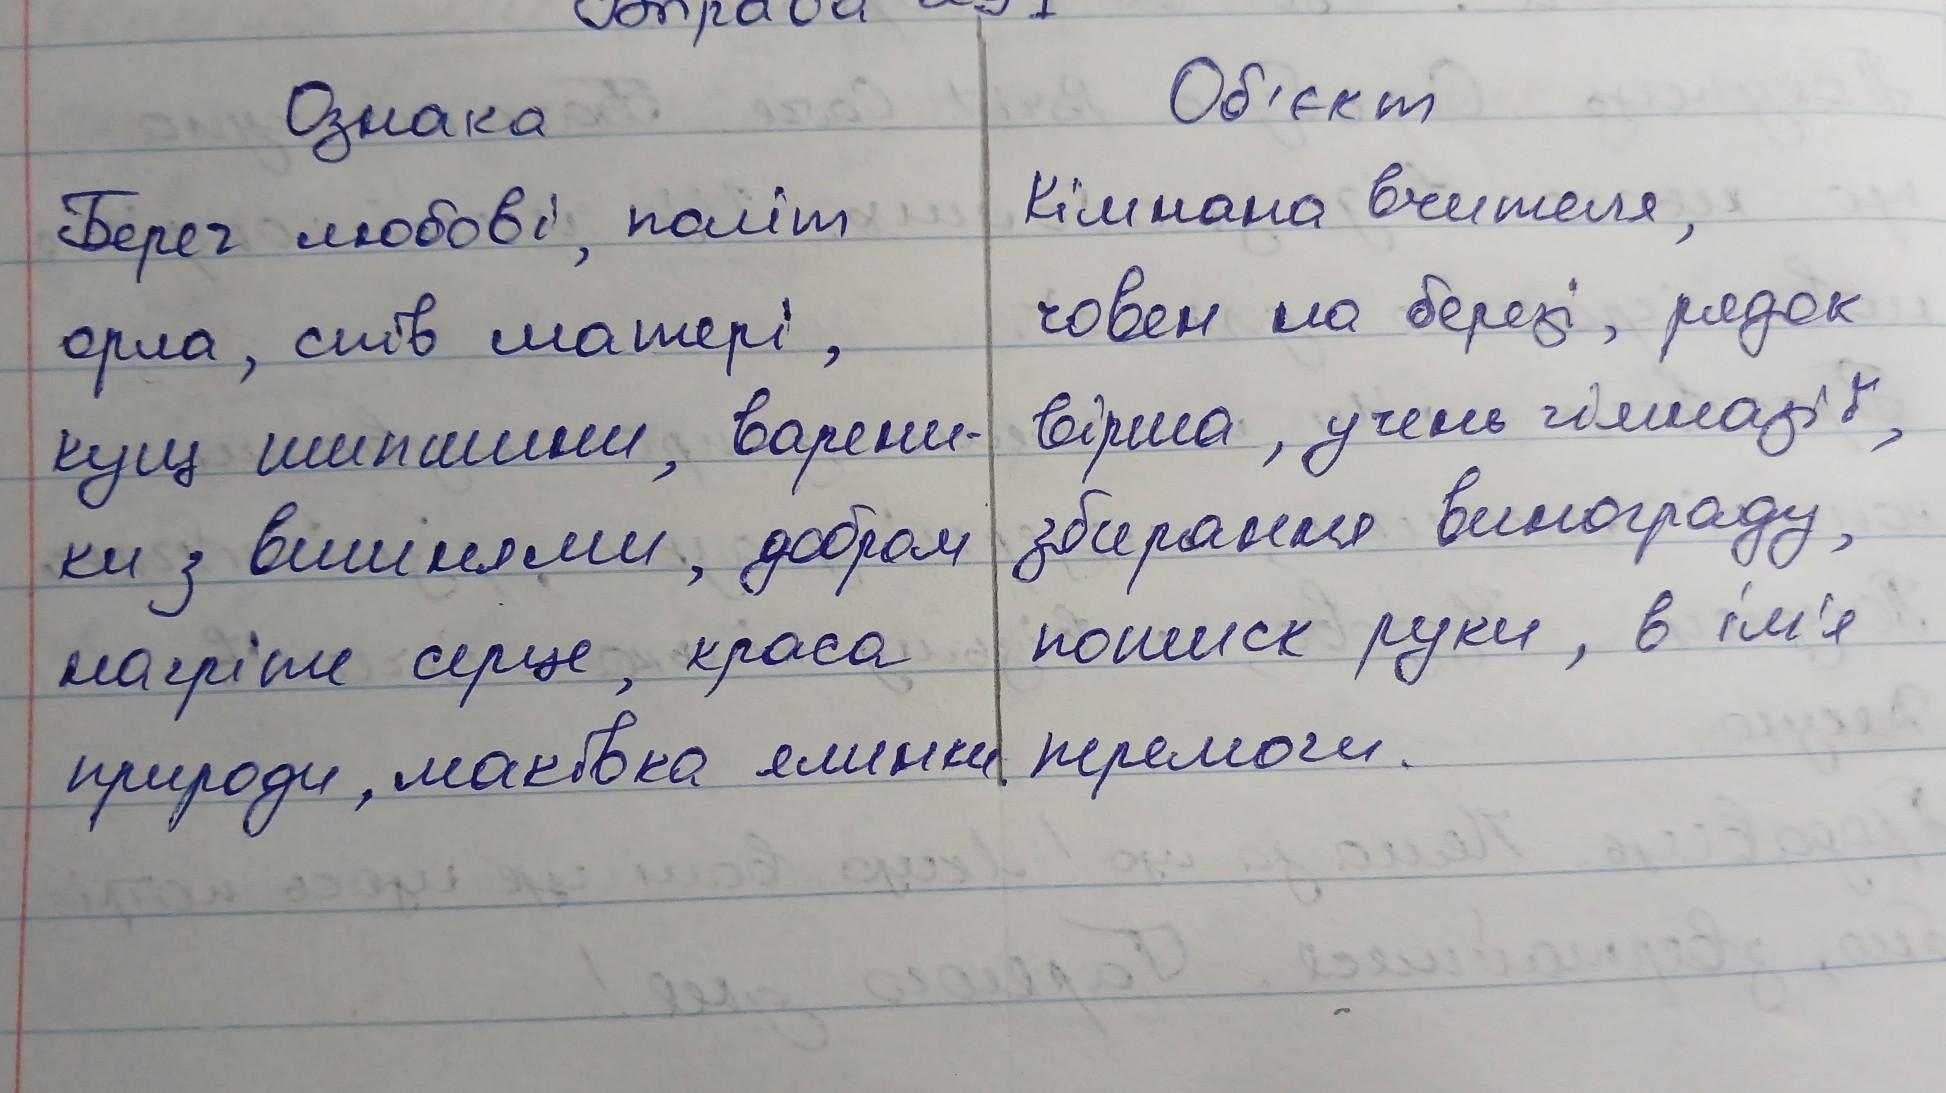 Вправа
Ознака
Об'єкт
Берег любові, політ
орла, спів матері,
кущ шипшини, варени-
ки з вишнями, добром
нагріте серце, краса
природи, маківка ялинки.
Кімната вчителя,
човен на березі, рядок
вірша, учень гімназії,
збирання винограду,
потиск руки, в ім'я
перемоги.